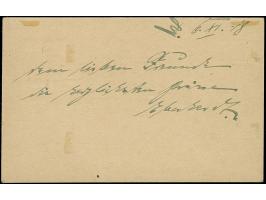 6. XI. 18
dem lieben Freunde
die herzlichsten Grüße
Eberhardt.